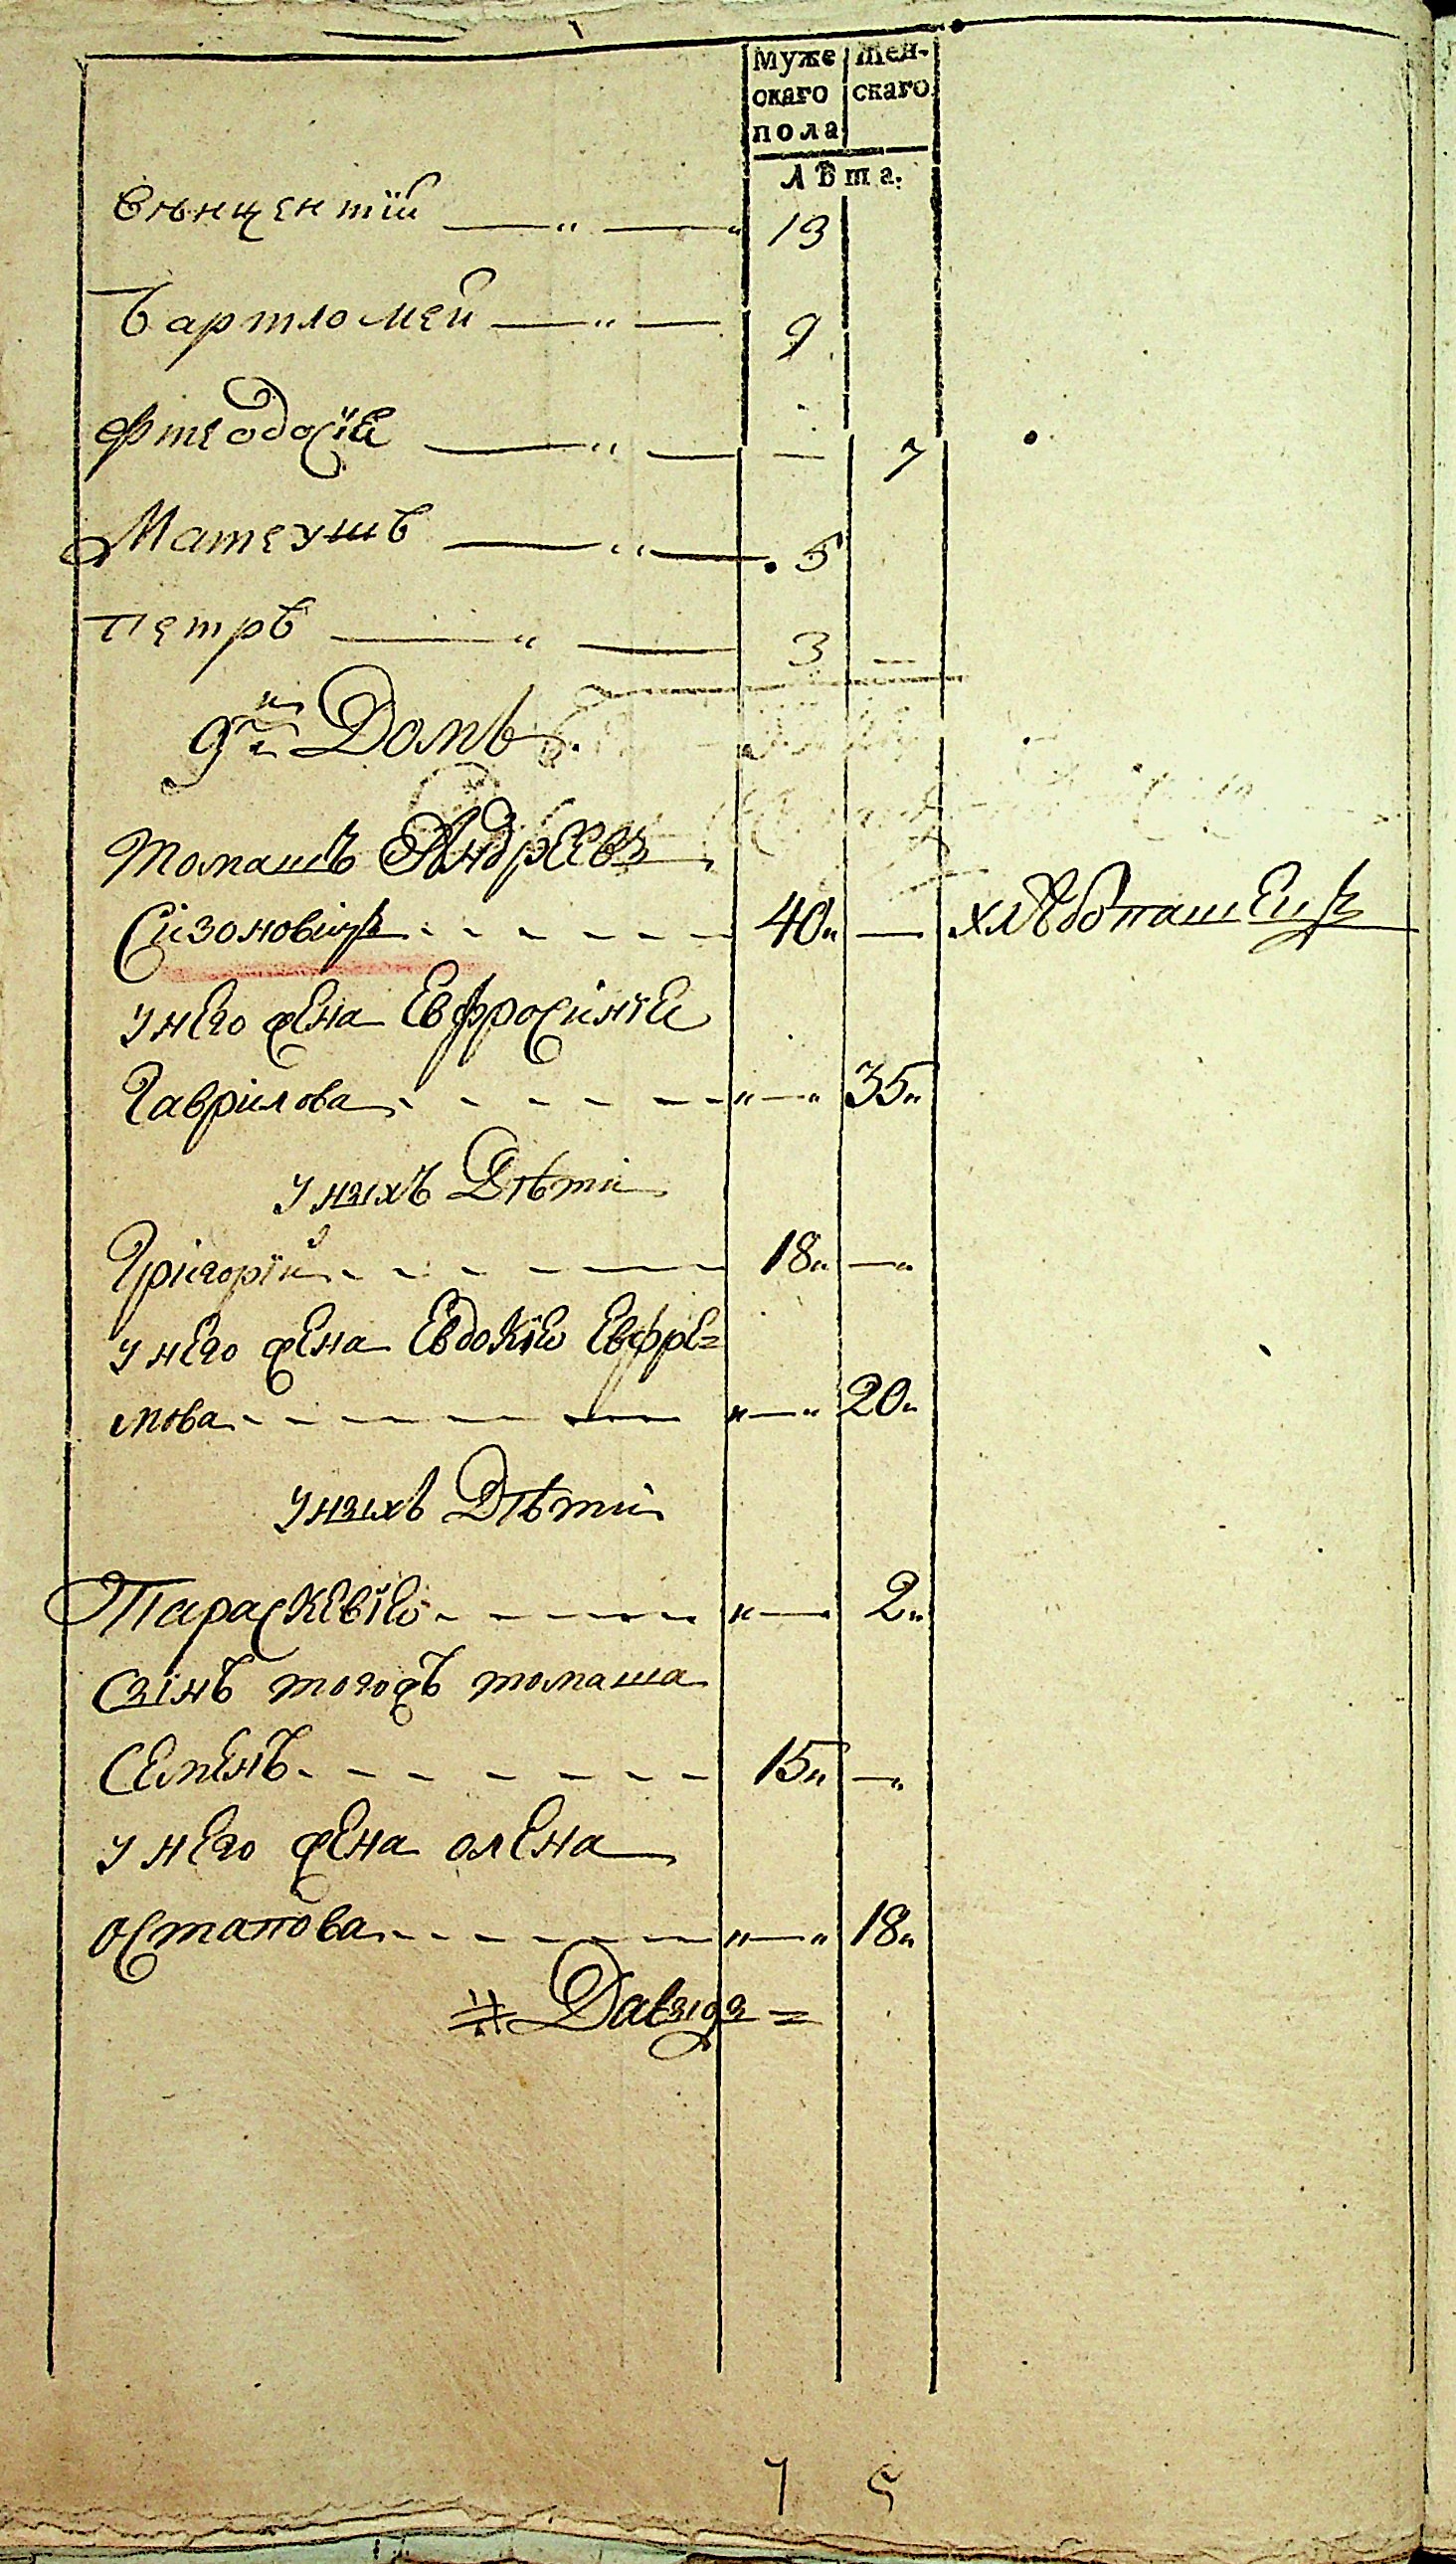 Муже Жен-
скаго скаго
пола
Лѣта.
Вѣнцентій — „ — „ 13
Бартломей — „ — 9
Фтеодосіѣ — „ — — 7
Матеушъ — „ — 5
Петръ — „ — 3 —
9й Домъ
Томашъ Андрѣевъ
Сизоновичъ - - - - - 40„ — хлѣбопашецъ
у него жена Евфросиніѣ
Гаврилова - - - - - „—„ 35„
у ныхъ Дѣти
Григорій - - - - — 18„ —„
у него жена Евдокіѣ Евфре=
мова - - - - — „—„ 20„
у ныхъ Дѣти
Параскевіѣ - - - - - „— 2„
Сынъ тогожъ томаша
Семенъ - - - - - - 15„ —„
у него жена олена
остапова - - - - — „—„ 18„
# Давыда =
7 5